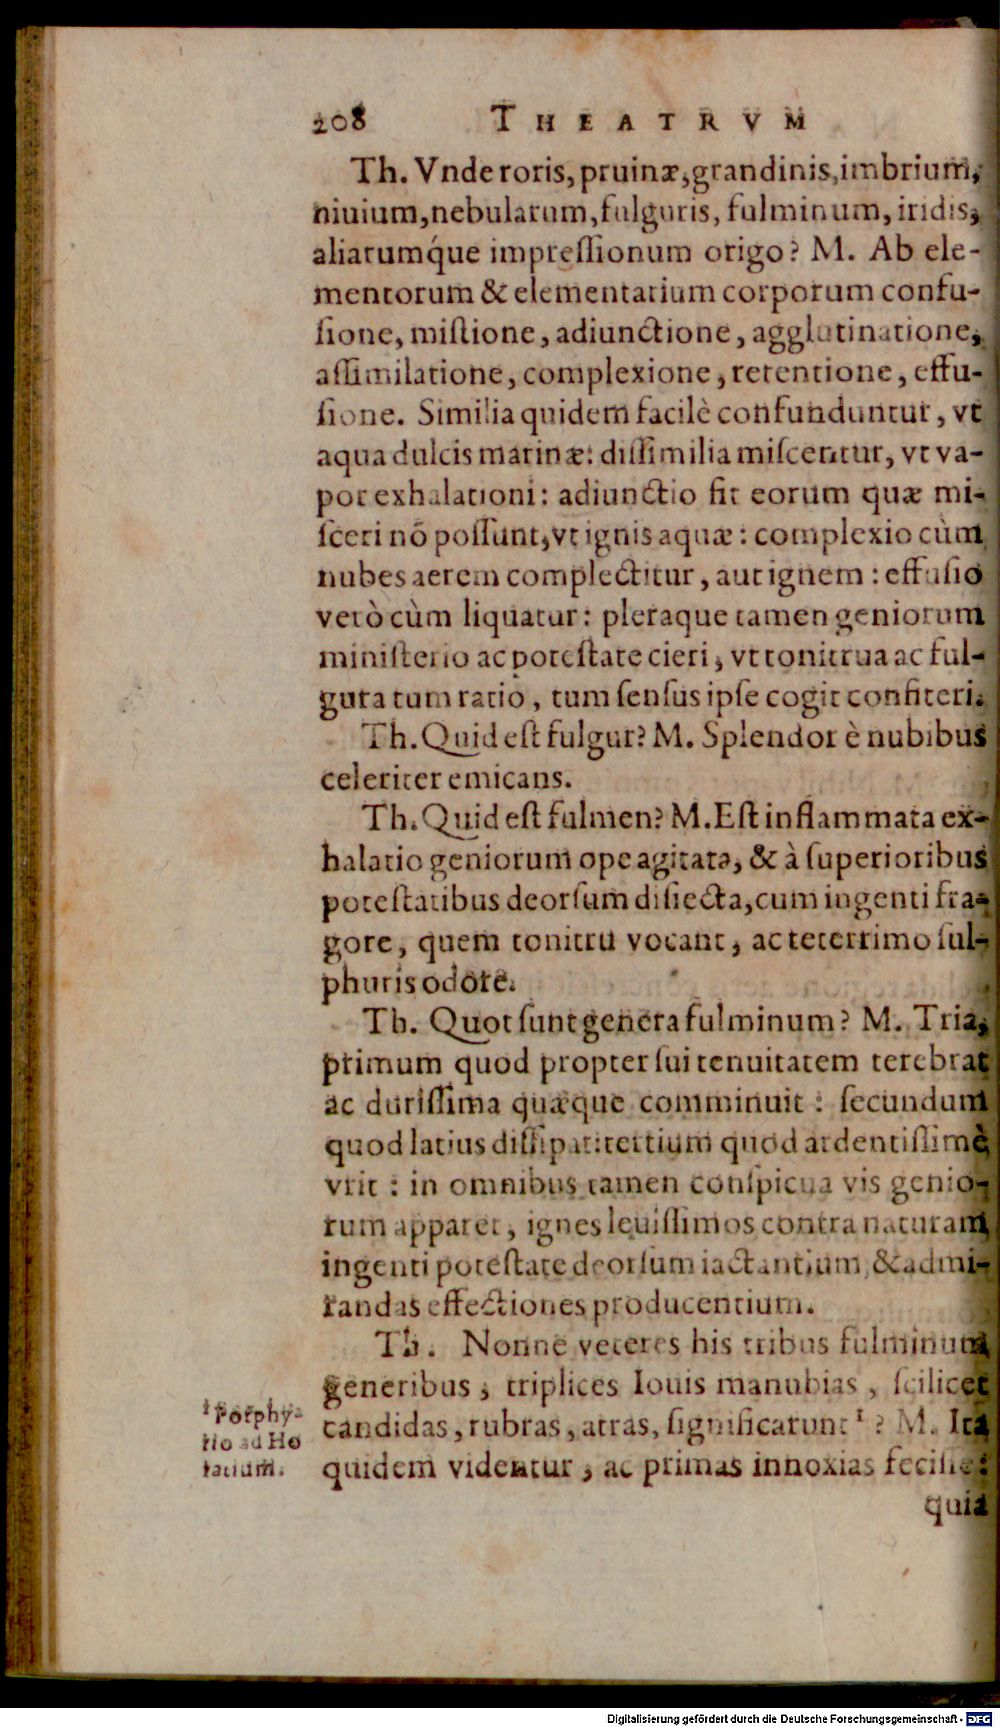 208 THEATRVM
Th. Vnde roris, pruinæ, grandinis, imbrium,
niuium, nebularum, fulguris, fulminum, iridis,
aliarumq́ue impreſſionum origo? M. Ab ele-
mentorum & elementarium corporum confu-
ſione, miſtione, adiunctione, agglutinatione,
aſſimilatione, complexione, retentione, effu-
ſione. Similia quidem facilè confunduntur, vt
aqua dulcis marinæ: diſſimilia miſcentur, vt va-
por exhalationi: adiunctio fit eorum quæ mi-
ſceri nō poſſunt, vt ignis aquæ: complexio cùm
nubes aerem complectitur, aut ignem: effuſio
verò cùm liquatur: pleraque tamen geniorum
miniſterio ac poteſtate cieri, vt tonitrua ac ful-
gura tum ratio, tum ſenſus ipſe cogit confiteri.
Th. Quid eſt fulgur? M. Splendor è nubibus
celeriter emicans.
Th. Quid eſt fulmen? M. Eſt inflammata ex-
halatio geniorum ope agitata, & à ſuperioribus
poteſtatibus deorſum diſiecta, cum ingenti fra-
gore, quem tonitru vocant, ac teterrimo ſul-
phuris odore.
Th. Quot ſunt genera fulminum? M. Tria,
primum quod propter ſui tenuitatem terebrat
ac duriſſima quæque comminuit: ſecundum
quod latius diſſipat: tertium quod ardentiſſimè
vrit: in omnibus tamen conſpicua vis genio-
rum apparet, ignes leuiſſimos contra naturam
ingenti poteſtate deorſum iactantium, & admi-
randas effectiones producentium.
Th. Nonne veteres his tribus fulminum
generibus, triplices Iouis manubias, ſcilicet
candidas, rubras, atras, ſignificarunt¹? M. Ita
quidem videntur, ac primas innoxias feciſſe:
quia
¹ Porphy-
rio ad Ho
ratium.
Digitalisierung gefördert durch die Deutsche Forschungsgemeinschaft - DFG